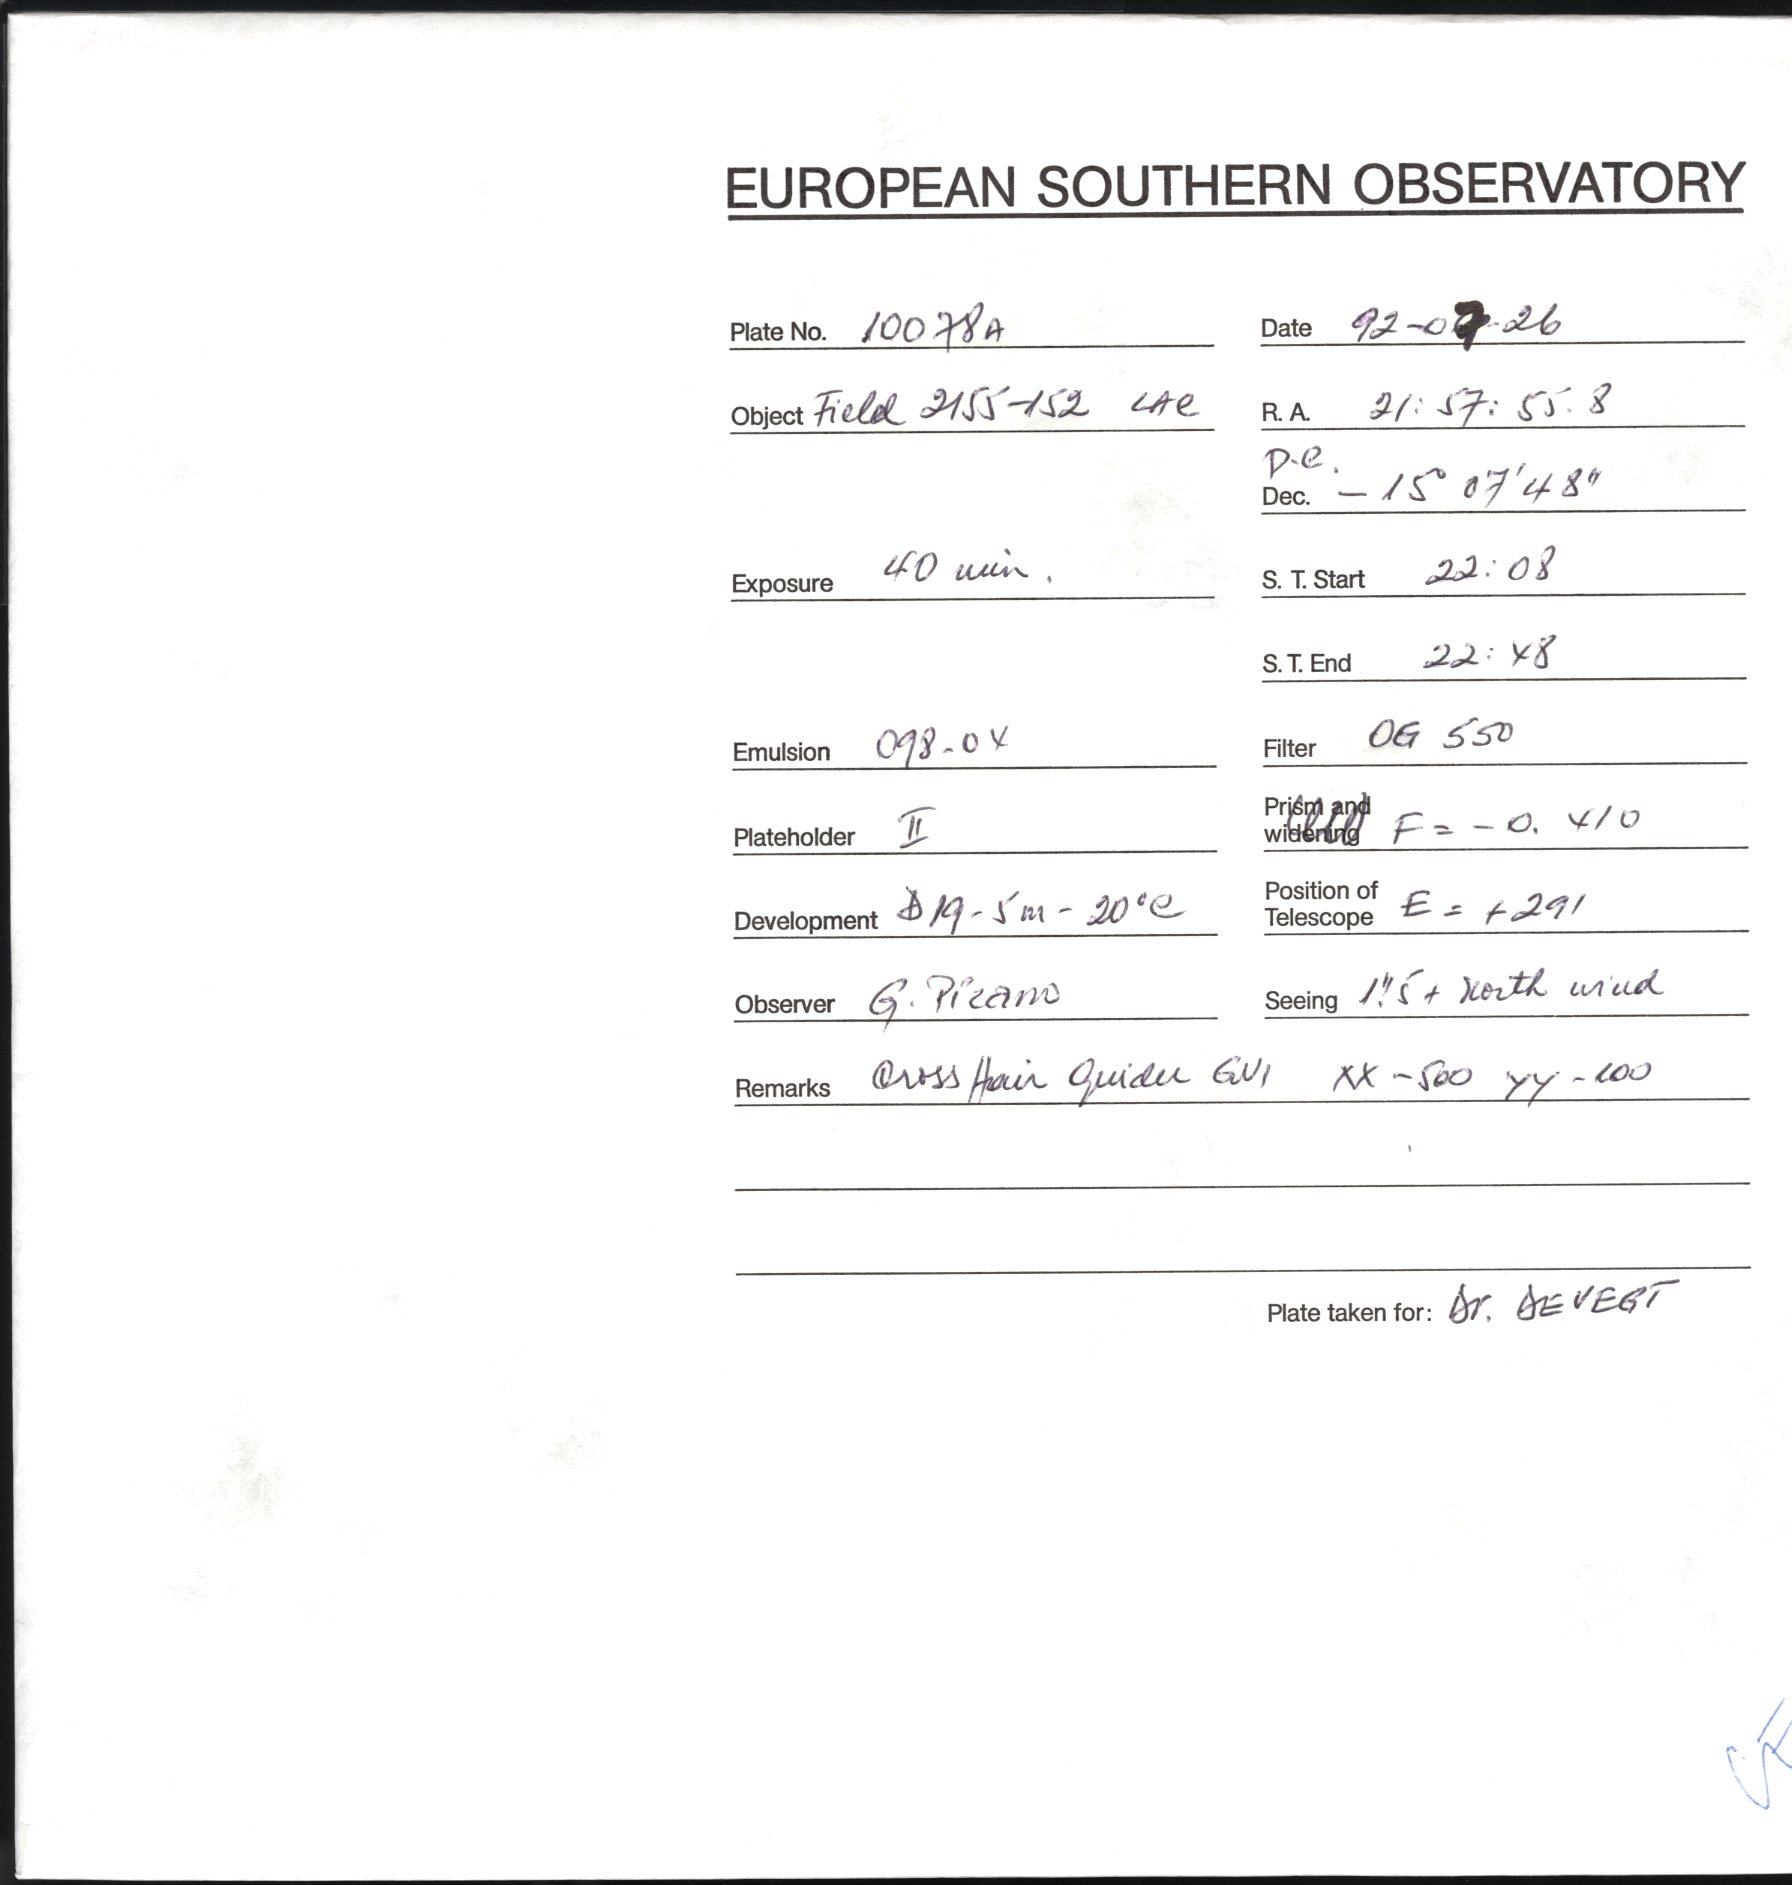 EUROPEAN SOUTHERN OBSERVATORY
Plate No. 10078A Date 92-07-26
Object Field 2155-152 LAC R. A. 21:57:55.8
P.C.
Dec. -15° 07' 48"
Exposure 40 min. S. T. Start 22:08
S. T. End 22:48
Emulsion 098-04 Filter OG 550
Prism and
widening F = -0.410
Plateholder II
Position of
Telescope E = +291
Development D19-5m-20°C
Observer G. Pizarro Seeing 1".5 + North wind
Remarks Cross Hair Guider GV1 XX -500 YY -100
Plate taken for: Dr. DEVEGT